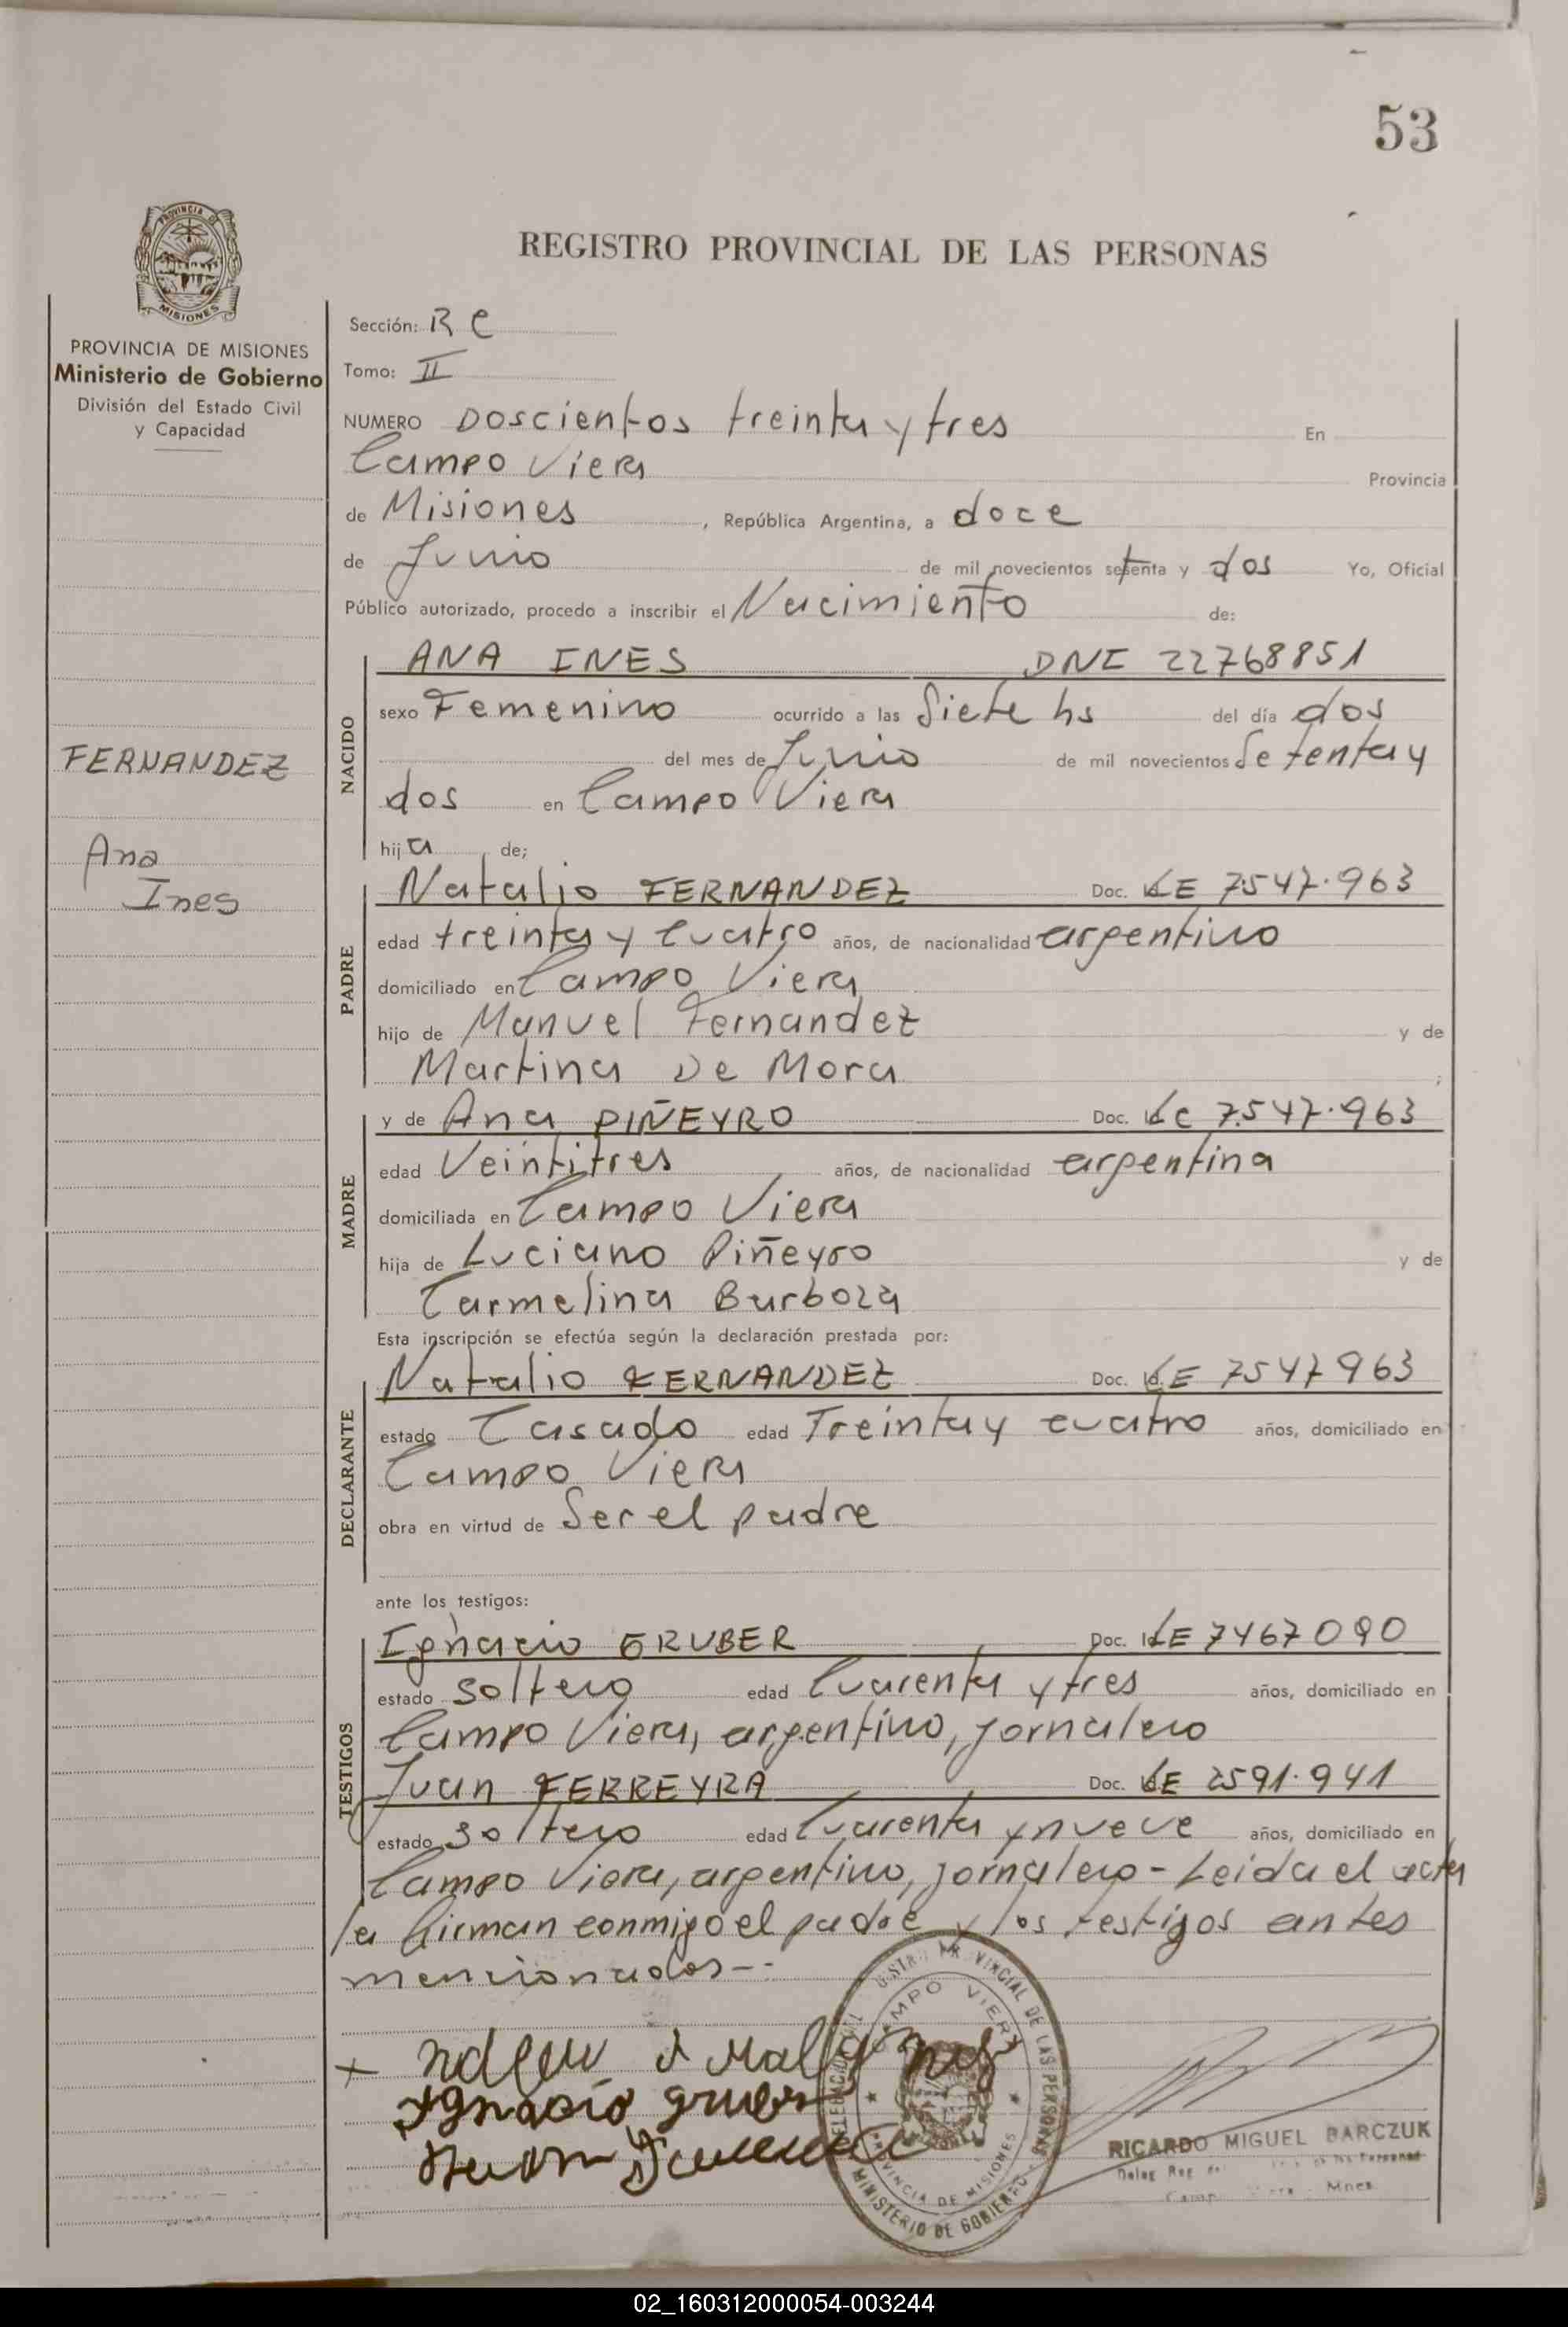 53
PROVINCIA DE
MISIONES
REGISTRO PROVINCIAL DE LAS PERSONAS
PROVINCIA DE MISIONES
Ministerio de Gobierno
División del Estado Civil
y Capacidad
FERNANDEZ
Ana
Ines
Sección: Re
Tomo: II
NUMERO Doscientos treinta y tres En
Campo Viera Provincia
de Misiones, República Argentina, a doce
de Junio de mil novecientos setenta y dos Yo, Oficial
Público autorizado, procedo a inscribir el Nacimiento de:
NACIDO
ANA INES DNI 22768851
sexo Femenino ocurrido a las Siete hs del día dos
del mes de Junio de mil novecientos Setenta y
dos en Campo Viera
hija de;
PADRE
Natalio FERNANDEZ Doc. LE 7547.963
edad treinta y cuatro años, de nacionalidad argentino
domiciliado en Campo Viera
hijo de Manuel Fernandez y de
Martina De Mora;
MADRE
y de Ana PIÑEYRO Doc. Lc 7.547.963
edad Veintitres años, de nacionalidad argentina
domiciliada en Campo Viera
hija de Luciano Piñeyro y de
Carmelina Barboza
Esta inscripción se efectúa según la declaración prestada por:
DECLARANTE
Natalio FERNANDEZ Doc. LE 7547963
estado Casado edad Treinta y cuatro años, domiciliado en
Campo Viera
obra en virtud de Ser el padre
ante los testigos:
TESTIGOS
Ignacio GRUBER Doc. LE 7467090
estado soltero edad Cuarenta y tres años, domiciliado en
Campo Viera, argentino, jornalero
Juan FERREYRA Doc. LE 2591.941
estado soltero edad Cuarenta y nueve años, domiciliado en
Campo Viera, argentino, jornalero - Leida el acta
la firman conmigo el padre y los testigos antes
mencionados--
Ignacio
CAMPO VIERA
PROVINCIAL DE LAS PERSONAS
PROVINCIA DE MISIONES
MINISTERIO DE GOBIERNO
RICARDO MIGUEL BARCZUK
Mnes
02_160312000054-003244